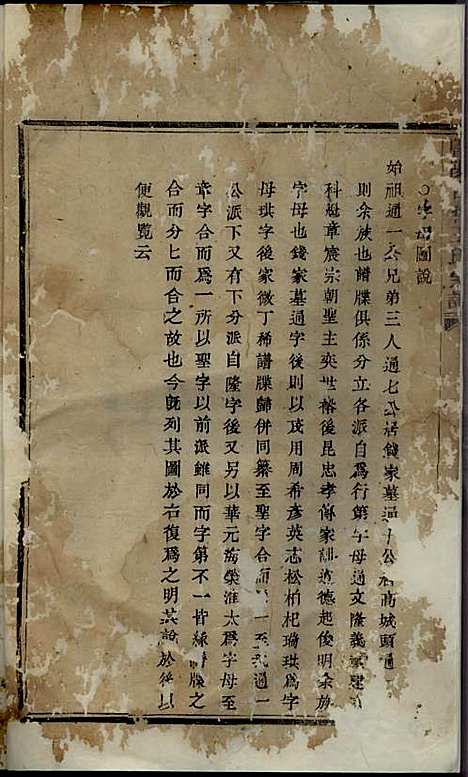 字母圖說
始祖通一公兄弟三人通七公居錢家墓通十公居商城頭通
則余族也譜牒俱係分立各派自爲行第字母通文隆義
科挺章宸宗朝聖主奕世裕後昆忠孝傳家訓道德起後明余族
字母也錢家墓通字後則以茂用周希彥英志松柏杞瑞珙爲字
母珙字後家微丁稀譜牒歸併同纂至聖字合而 一至 通一
公派下又有下分派自隆字後又另以華元海榮淮太爲字母至
章字合而爲一所以聖字以前派雖同而字第不一皆緣譜牒之
合而分七而合之故也今旣列其圖於右復爲之明其說於後以
便觀覽云